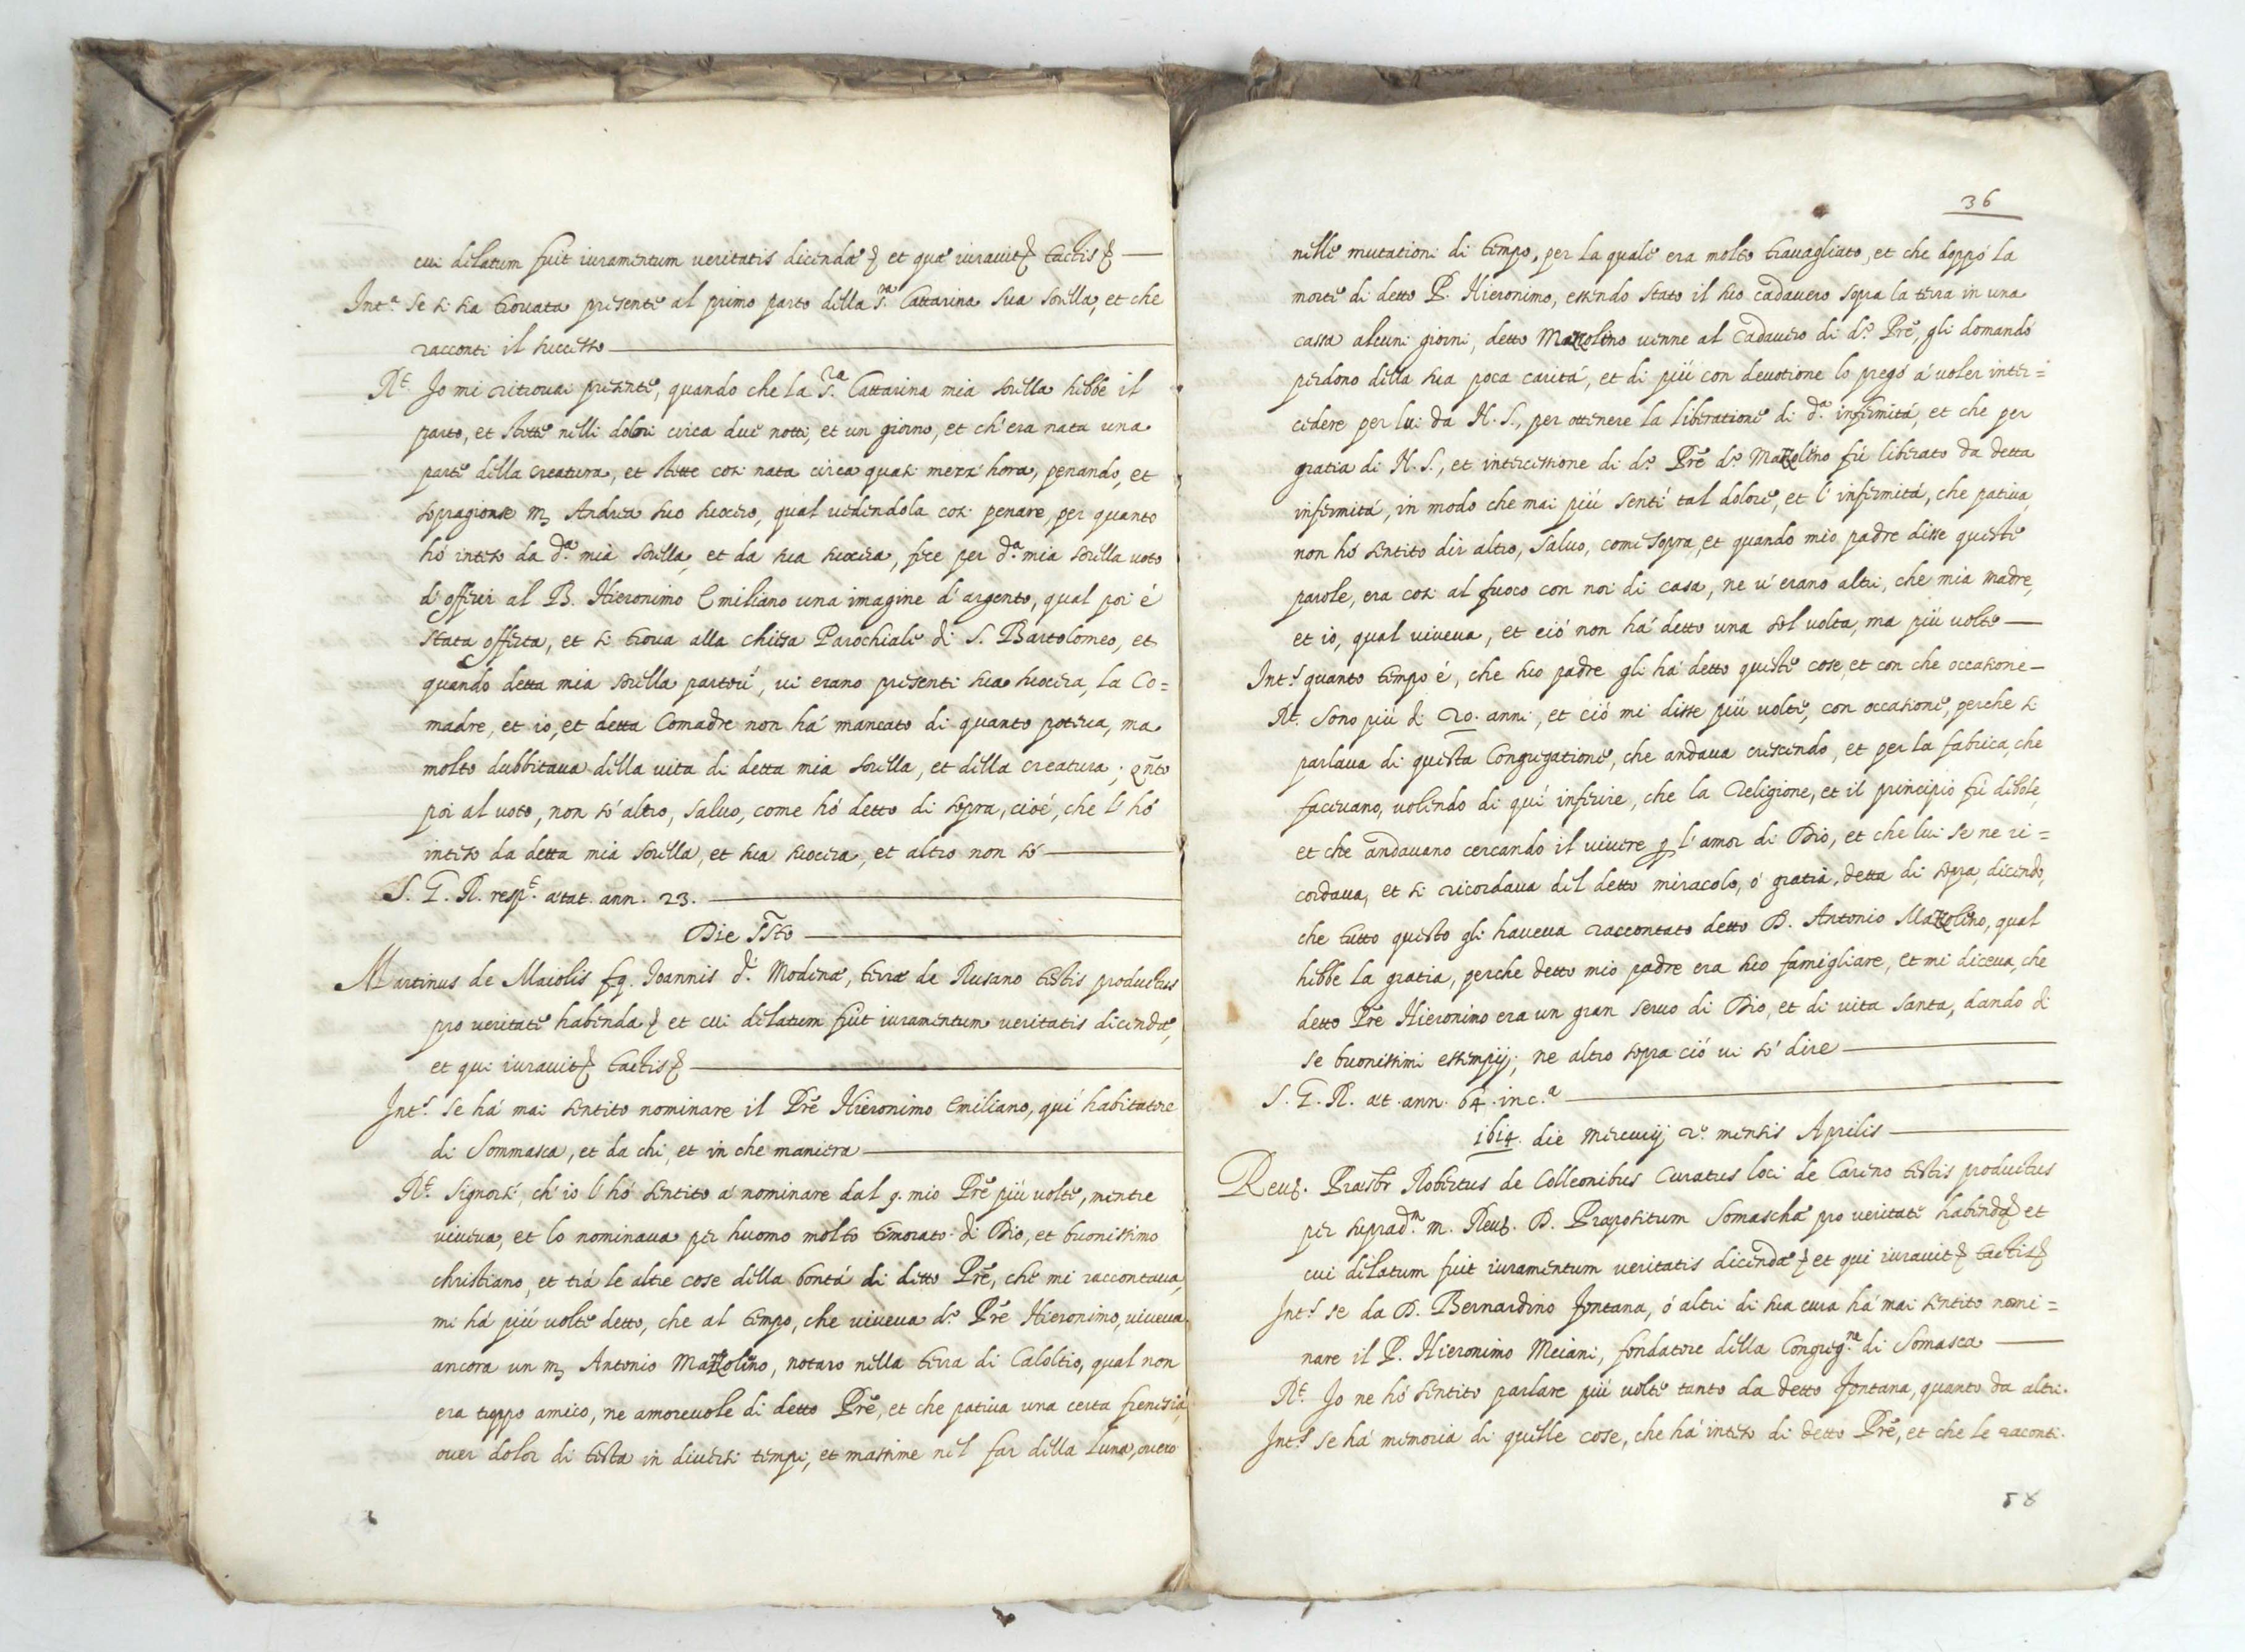 cui delatum fuit iuramentum veritatis dicendæ et quæ iuravit tactis
Int.ᵃ se si ha trovata presente al primo parto della S.ʳᵃ Cattarina sua sorella, et che
racconti il successo
R.ᵗ Jo mi ritrovai presente, quando che la S.ʳᵃ Cattarina mia sorella hebbe il
parto, et stette nelli dolori circa due notti, et un giorno, et ch'era nata una
parte della creatura, et stette così nata circa quasi mezz'hora, penando, et
sopragionse m. Andrea suo suocero, qual vedendola così penare, per quanto
hó inteso da d.ᵃ mia sorella, et da sua suocera, fece per d.ᵃ mia sorella voto
d'offerir al B. Hieronimo Emiliano una imagine d'argento, qual poi é
stata offerta, et si trova alla chiesa Parochiale di S. Bartolomeo, et
quando detta mia sorella partorí, vi erano presenti sua suocera, la Co=
madre, et io, et detta Comadre non há mancato di quanto poteva, ma
molto dubbitava della vita di detta mia sorella, et della creatura; qñto
poi al voto, non só altro, salvo, come hó detto di sopra, cioé, che l'hó
inteso da detta mia sorella, et sua suocera, et altro non só
S. G. R. resp.ᵗ ætat. ann. 23.
Die ss.to
Martinus de Maiolis f.q. Joannis d.ⁱ Modinæ, terræ de Rusano testis productus
pro veritate habenda et cui delatum fuit iuramentum veritatis dicendæ,
et qui iuravit tactis
Int.ˢ se há mai sentito nominare il Prē Hieronimo Emiliano, quí habitatore
di Sommasca, et da chi, et in che maniera
R.ᵗ Signorsí, ch'io l'hó sentito á nominare dal q. mio Prē più volte, mentre
viveva, et lo nominava per huomo molto timorato di Dio, et buonissimo
christiano, et trá le altre cose della bontá di detto Prē, che mi raccontava,
mi há piú volte detto, che al tempo, che viveva d.º Prē Hieronimo, viveva
ancora un m. Antonio Mazzolino, notaro nella terra di Caloltio, qual non
era troppo amico, ne amorevole di detto Prē, et che pativa una certa frenesia
over dolor di testa in diversi tempi, et massime nel far della Luna, overo
36
nelle mutationi di tempo, per la quale era molto travagliato, et che doppó la
morte di detto P. Hieronimo, essendo stato il suo cadavero sopra la terra in una
cassa alcuni giorni, detto Mazzolino venne al cadavero di d.º Prē, gli domandó
perdono della sua poca caritá, et di piú con devotione lo pregó á voler inter=
cedere per lui da N. S., per ottenere la liberatione di d.ᵃ infermitá, et che per
gratia di N. S., et intercessione di d.º Prē d.º Mazzolino fú liberato da detta
infermitá, in modo che mai piú sentí tal dolore, et l'infermitá, che pativa,
non hó sentito dir altro, salvo, come sopra, et quando mio padre disse queste
parole, era cosi al fuoco con noi di casa, ne v'erano altri, che mia madre,
et io, qual viveva, et ció non há detto una sol volta, ma piú volte
Int.ˢ quanto tempo é, che suo padre gli há detto queste cose, et con che occasione
R.ᵗ Sono piú di 20. anni, et ció mi disse piú volte, con occasione, perche si
parlava di questa Congregatione, che andava crescendo, et per la fabrica, che
facevano, volendo di quí inferire, che la Religione, et il principio fú debole,
et che andavano cercando il vivere p l'amor di Dio, et che lui se ne ri=
cordava, et si ricordava del detto miracolo, ó gratia, detta di sopra, dicendo,
che tutto questo gli haveva raccontato detto D. Antonio Mazzolino, qual
hebbe la gratia, perche detto mio padre era suo famigliare, et mi diceva, che
detto Prē Hieronimo era un gran servo di Dio, et di vita santa, dando di
se buonissimi essempij; ne altro sopra ció vi só dire
S. G. R. æt. ann. 64. inc.ᵃ
1614. die mercurij 2.º mensis Aprilis
Reu. Præsbr Robertus de Colleonibus Curatus loci de Careno testis productus
per suprad.ᵐ m. Reu. D. Præpositum Somaschæ pro veritate habenda et
cui delatum fuit iuramentum veritatis dicendæ et qui iuravit tactis
Int.ˢ se da D. Bernardino Fontana, ó altri di sua cura há mai sentito nomi=
nare il P. Hieronimo Meiani, fondatore della Congreg.ⁿᵉ di Somasca
R.ᵗ Jo ne hó sentito parlare piú volte tanto da detto Fontana, quanto da altri.
Int.ˢ se há memoria di quelle cose, che há inteso di detto Prē, et che le raconti.
58